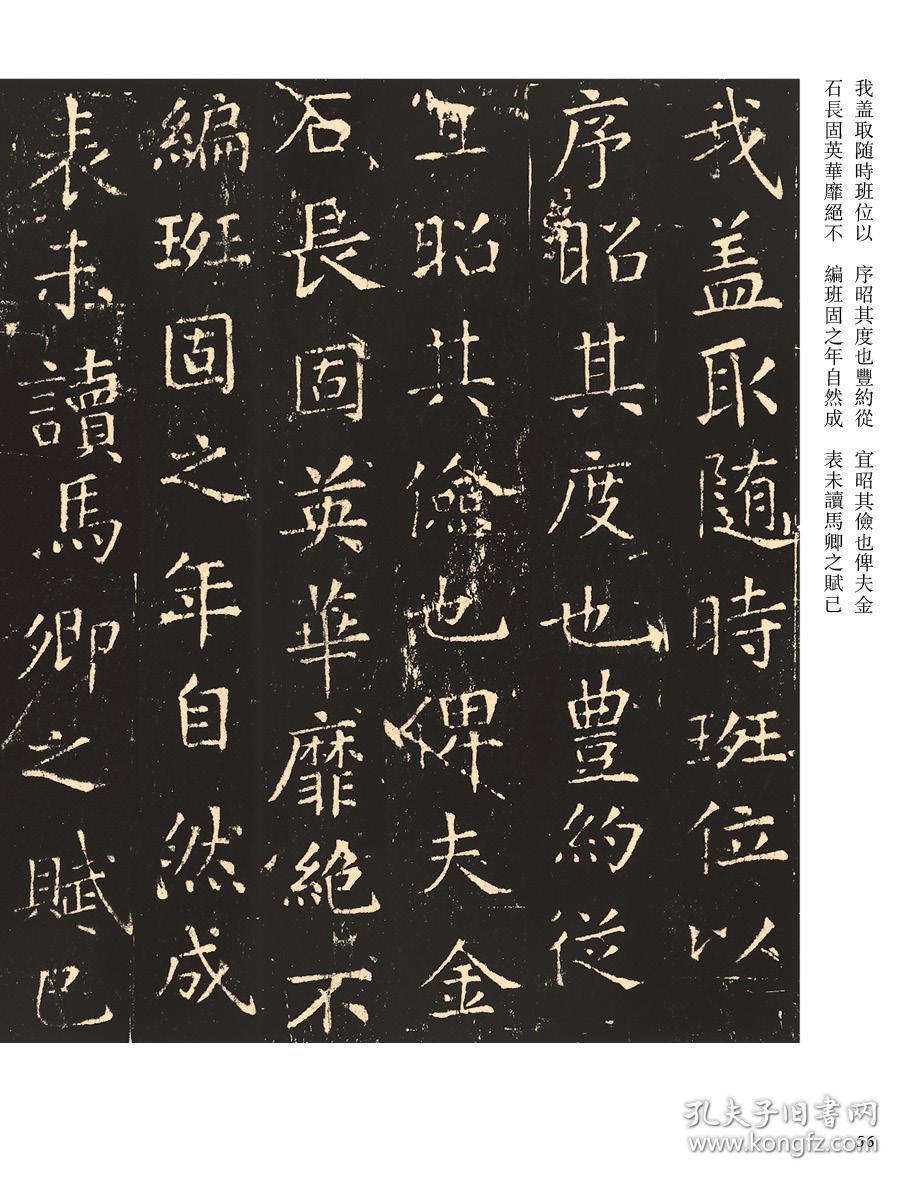 我盖取随時班位以　序昭其度也豐約從　宜昭其儉也俾夫金
石長固英華靡絕不　編班固之年自然成　表未讀馬卿之賦已
我盖取随時班位以
序昭其度也豊約從
宜昭其儉也俾夫金
石長固英華靡絕不
編班固之年自然成
表未讀馬卿之賦已
孔夫子旧书网
www.kongfz.com
56